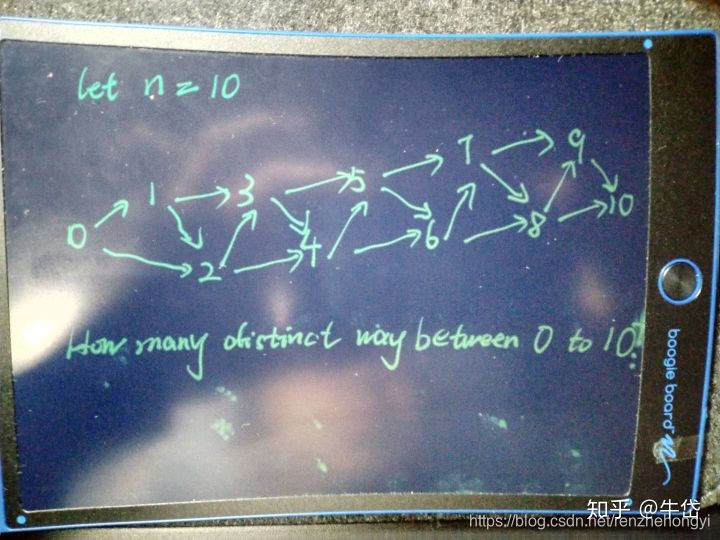 let n = 10
0 1 2 3 4 5 6 7 8 9 10
How many distinct way between 0 to 10?
boogie board
知乎 @牛岱
https://blog.csdn.net/renzhehongyi